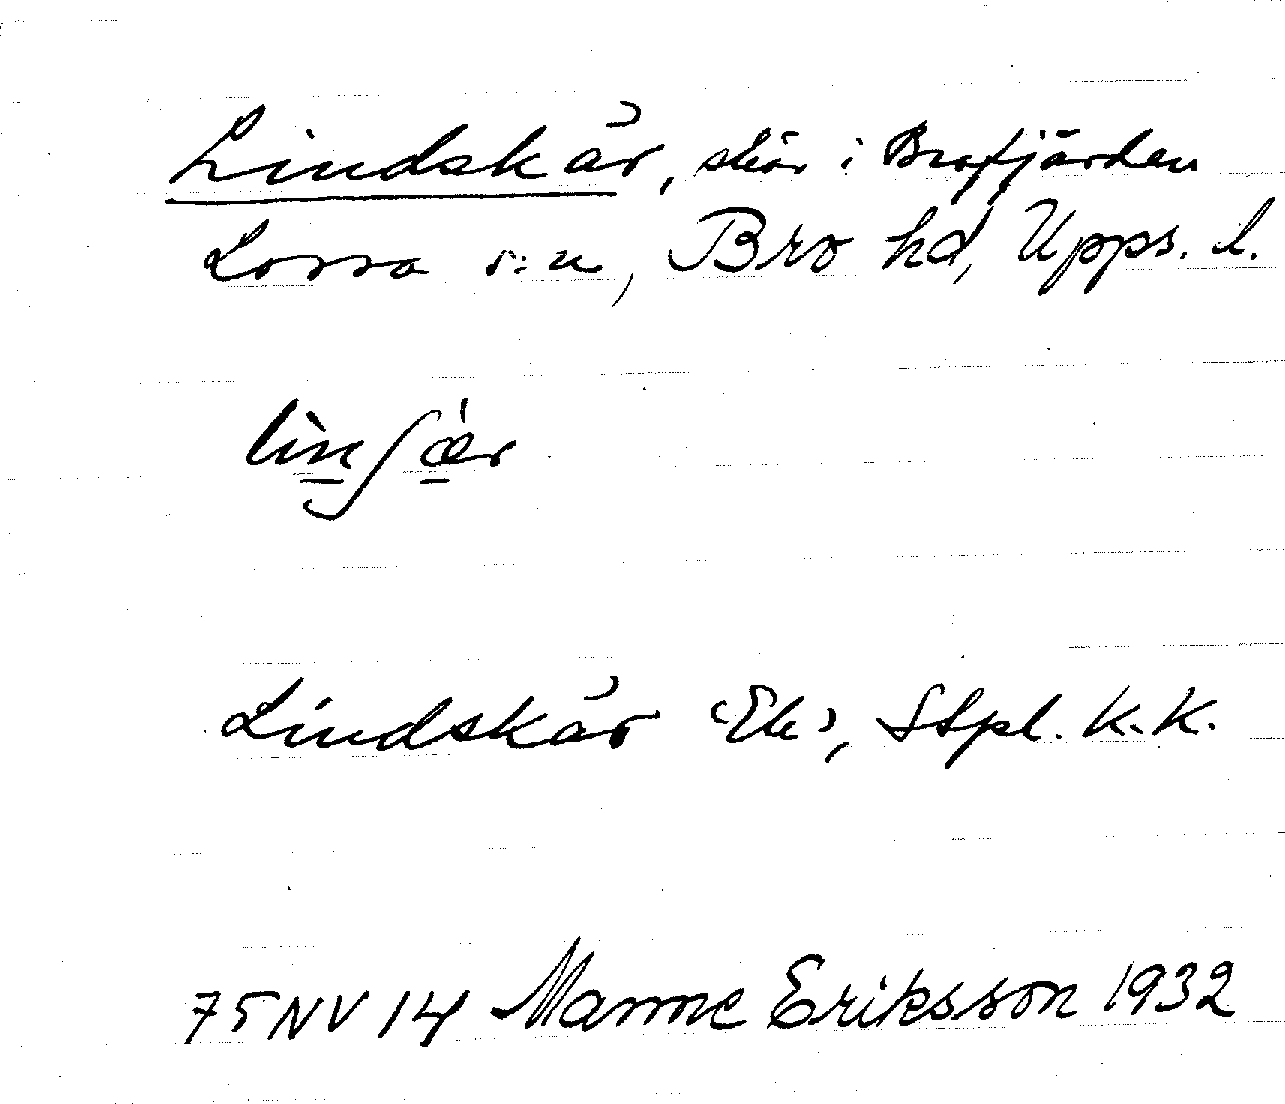 Lindskär, skär i Brofjärden
Lossa s:n, Bro hd, Upps. l.
lìnʃæ̀r
Lindskär (Ek), Stpl. K.K.
75 NV 14 Manne Eriksson 1932